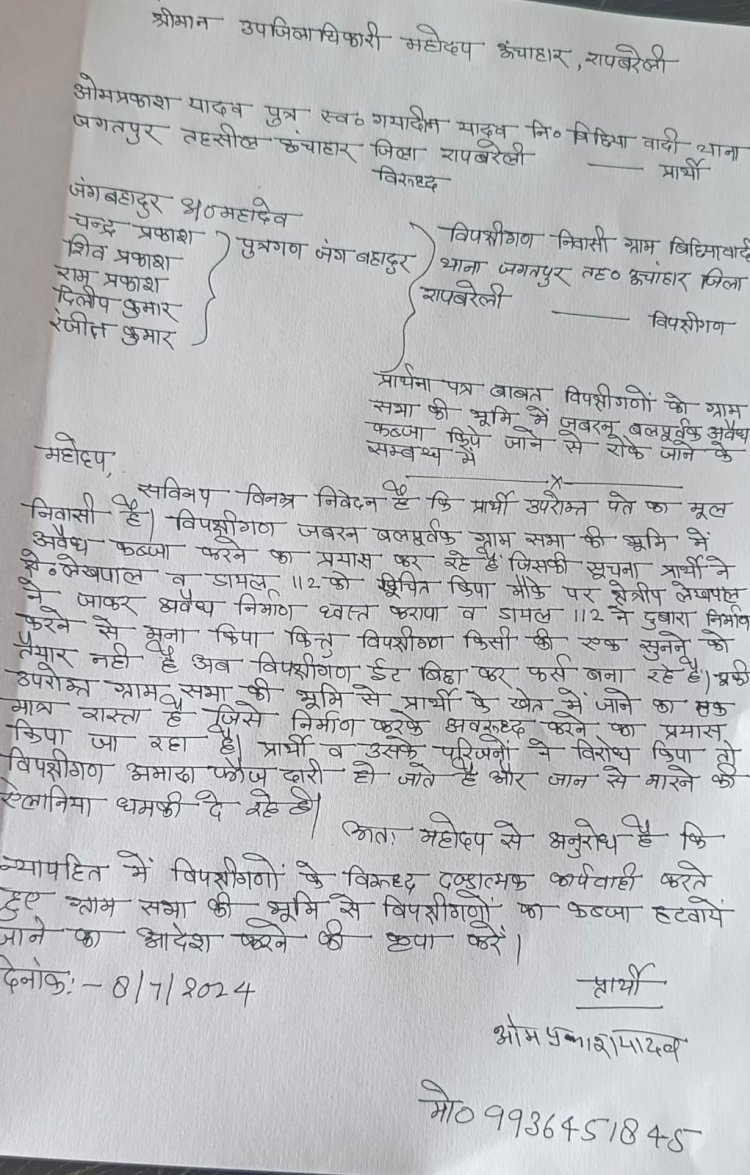 श्रीमान उपजिलाधिकारी महोदय ऊंचाहार, रायबरेली
ओमप्रकाश यादव पुत्र स्व० गयादीन यादव नि० बिहिया वादी थाना
जगतपुर तहसील ऊंचाहार जिला रायबरेली — प्रार्थी
विरुध्द
जंगबहादुर अ०महादेव
चन्द्र प्रकाश
शिव प्रकाश
राम प्रकाश
दिलीप कुमार
रंजीत कुमार
पुत्रगण जंग बहादुर
विपक्षीगण निवासी ग्राम बिहियावादी
थाना जगतपुर तह० ऊंचाहार जिला
रायबरेली — विपक्षीगण
प्रार्थना पत्र बाबत विपक्षीगणों को ग्राम
सभा की भूमि में जबरन बलपूर्वक अवैध
कब्जा किये जाने से रोके जाने के
सम्बध में
महोदय,
सविनय विनम्र निवेदन है कि प्रार्थी उपरोक्त पते का मूल
निवासी है। विपक्षीगण जबरन बलपूर्वक ग्राम सभा की भूमि में
अवैध कब्जा करने का प्रयास कर रहे है जिसकी सूचना प्रार्थी ने
क्षे० लेखपाल व डायल 112 को सूचित किया मौके पर क्षेत्रीय लेखपाल
ने जाकर अवैध निर्माण ध्वस्त कराया व डायल 112 ने दुबारा निर्माण
करने से मना किया किन्तु विपक्षीगण किसी की एक सुनने को
तैयार नही है अब विपक्षीगण ईट बिछा कर फर्स बना रहे है।
उपरोक्त ग्राम सभा की भूमि से प्रार्थी के खेत में जाने का एक
मात्र रास्ता है जिसे निर्माण करके अवरुध्द करने का प्रयास
किया जा रहा है। प्रार्थी व उसके परिजनों ने विरोध किया तो
विपक्षीगण अमादा फौजदारी हो जाते है और जान से मारने की
ऐलानिया धमकी दे रहे है।
अतः महोदय से अनुरोध है कि
न्यायहित में विपक्षीगणों के विरूध्द दण्डात्मक कार्यवाही करते
हुए ग्राम सभा की भूमि से विपक्षीगणों का कब्जा हटवाये
जाने का आदेश करने की कृपा करें।
दिनांक:- 8/7/2024
प्रार्थी
ओम प्रकाश यादव
मो० 9936451845